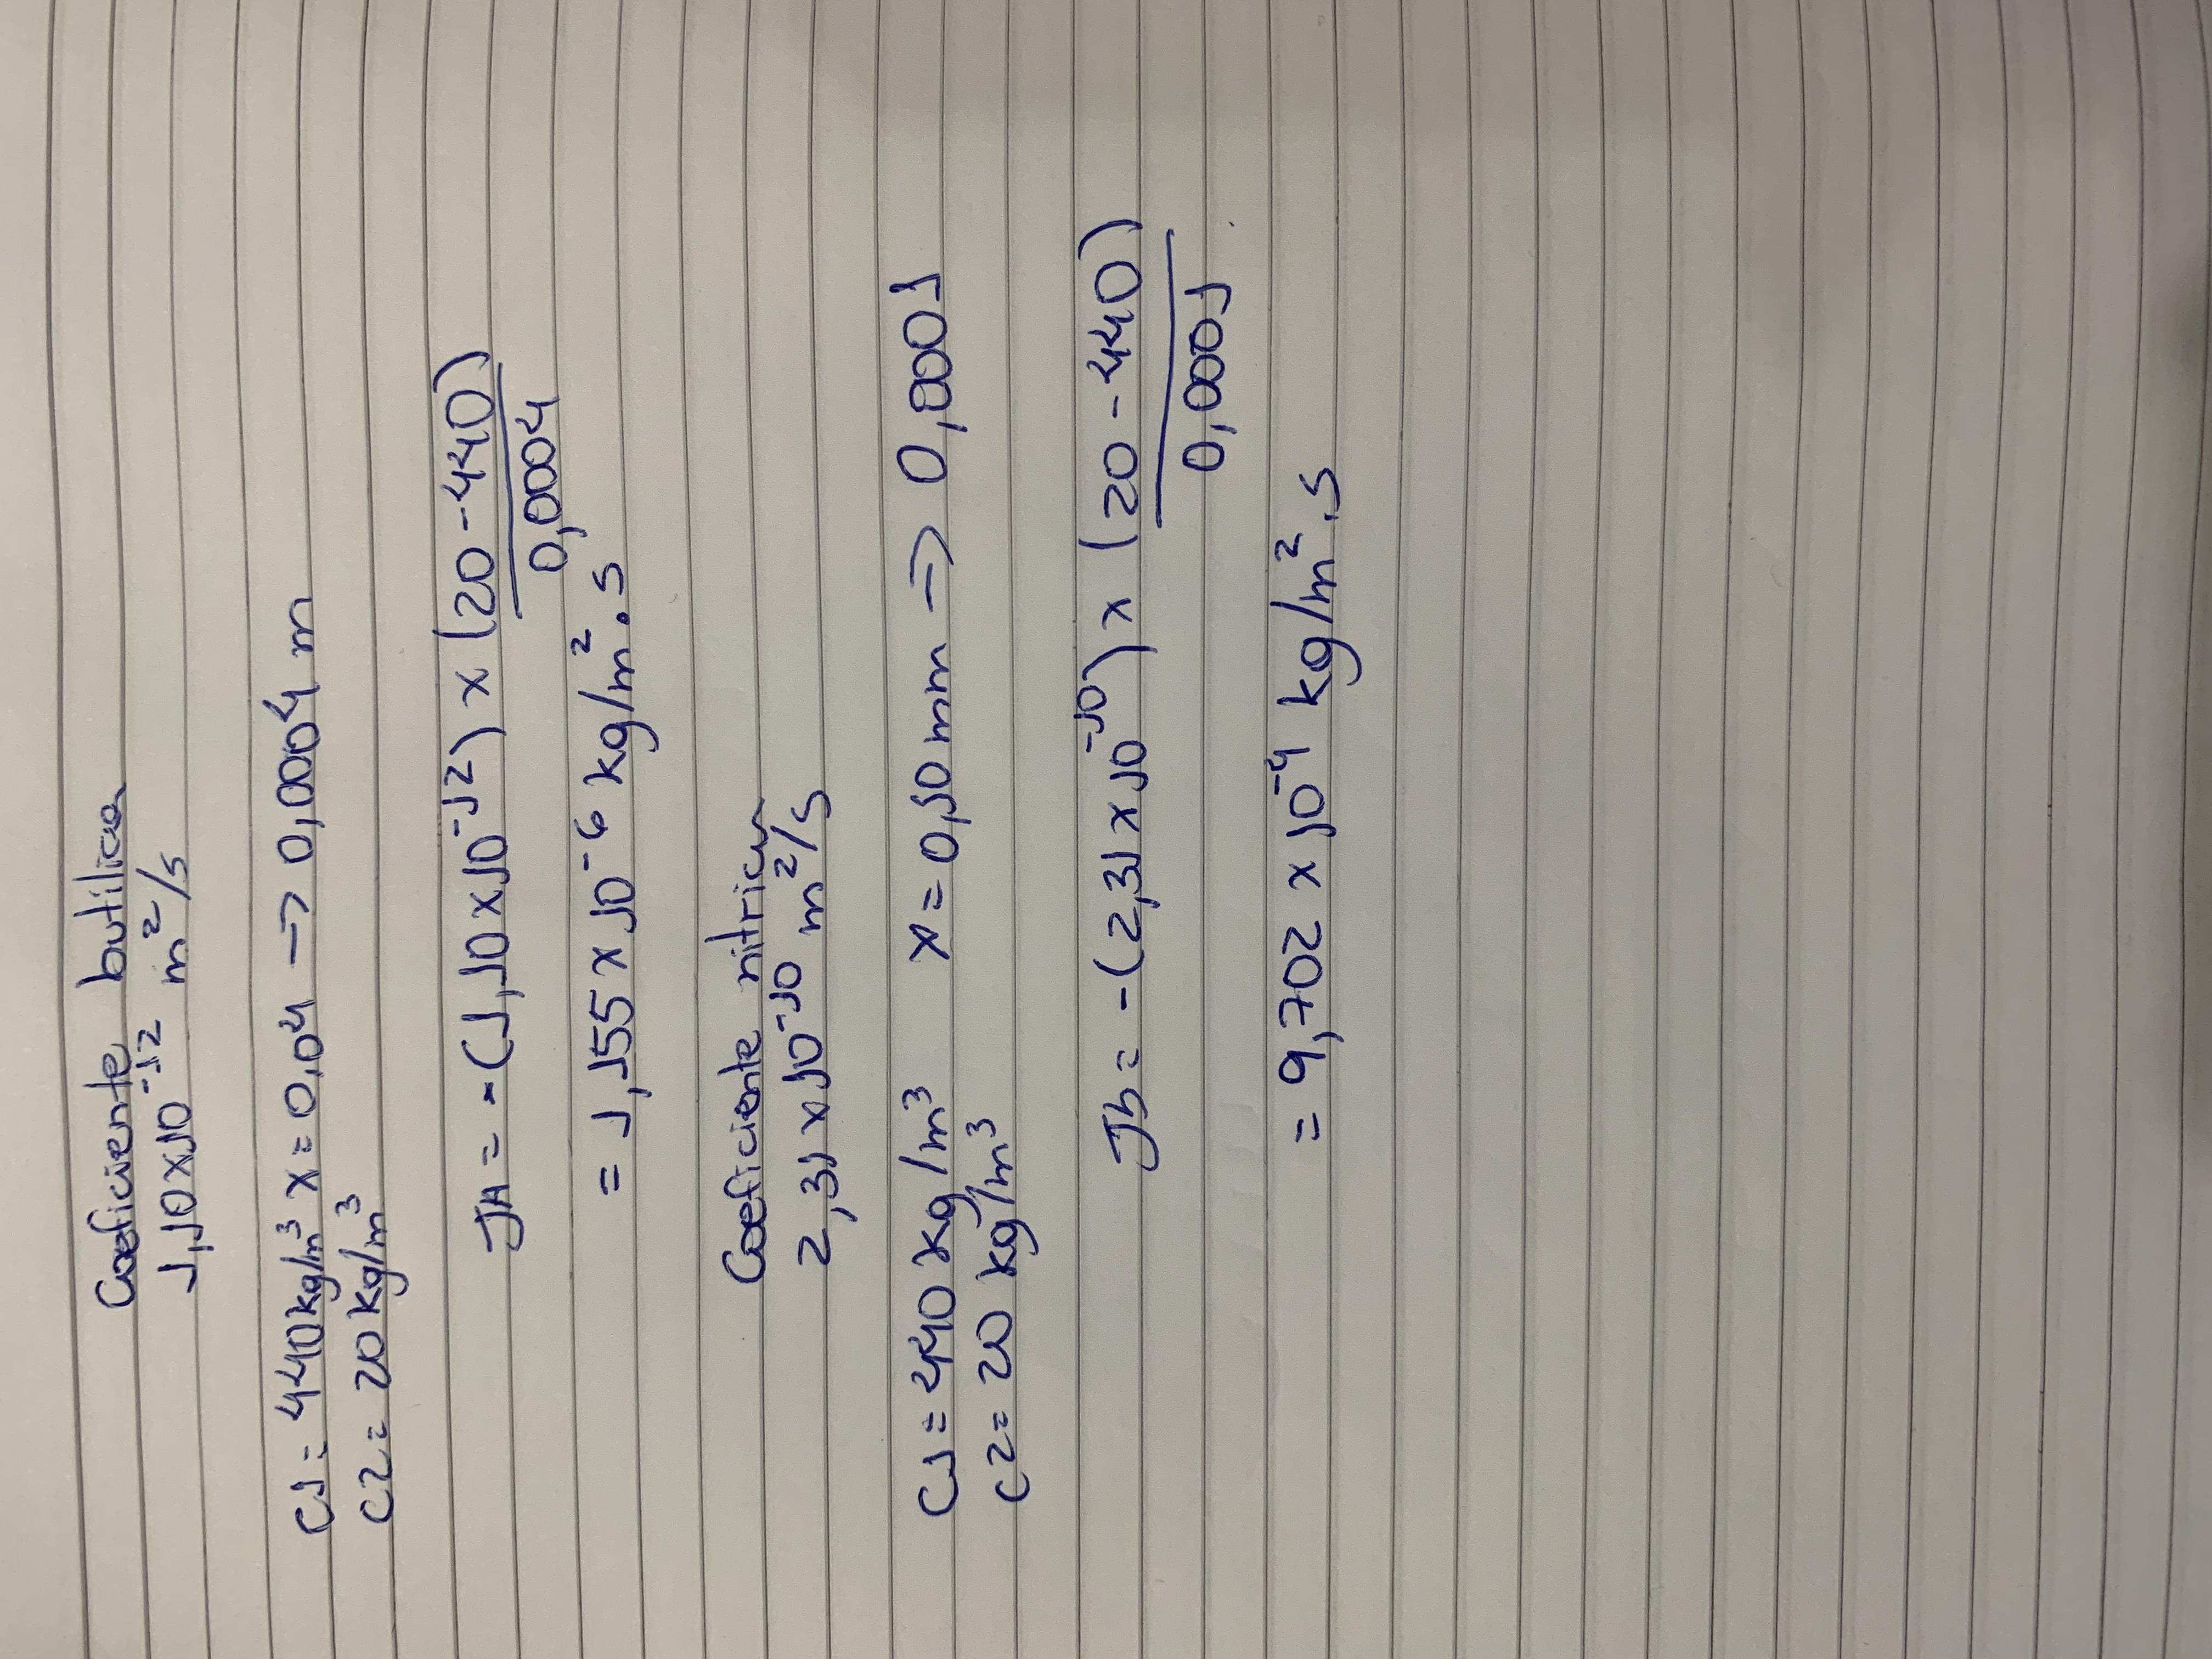 Coeficiente butilica
1,10x10⁻¹² m²/s
C1 = 440kg/m³ x = 0,04 -> 0,0004 m
C2 = 20 kg/m³
JA = - (1,10x10⁻¹²) x (20 - 440)
0,0004
= 1,155 x 10⁻⁶ kg/m².s
Coeficiente nitrica
2,31 x 10⁻¹⁰ m²/s
C1 = 440 kg/m³ x = 0,10 mm => 0,0001
C2 = 20 kg/m³
Jb = - (2,31 x 10⁻¹⁰) x (20 - 440)
0,0001
= 9,702 x 10⁻⁴ kg/m².s